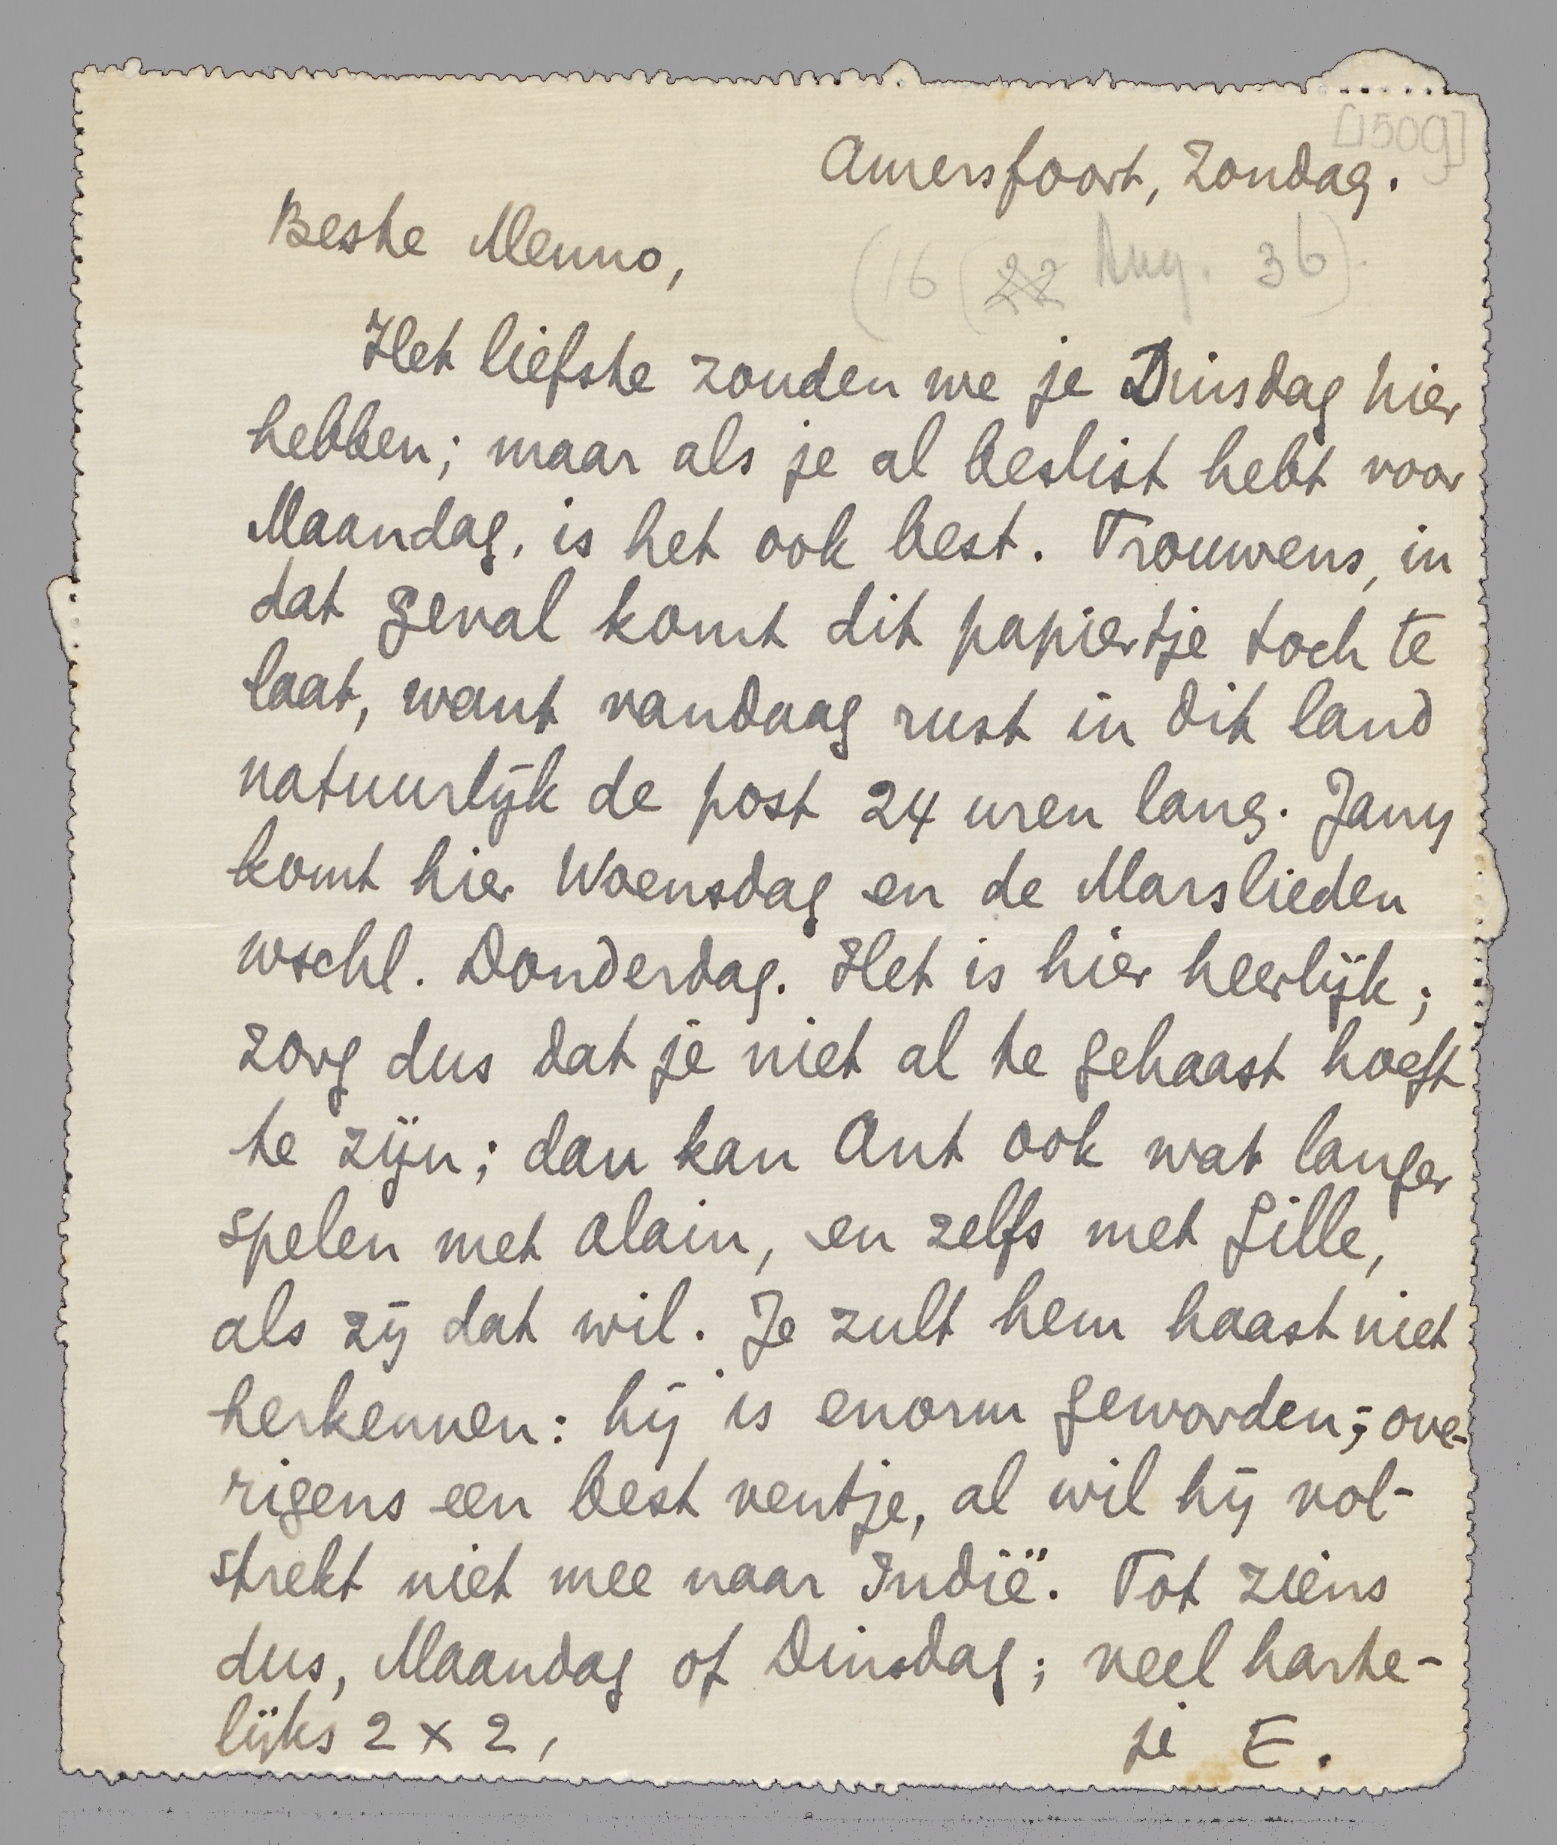 [1509]
Amersfoort, Zondag.
Beste Menno,
(16 (22 Aug. 36).
Het liefste zouden we je Dinsdag hier
hebben; maar als je al beslist hebt voor
Maandag, is het ook best. Trouwens, in
dat geval komt dit papiertje toch te
laat, want vandaag rust in dit land
natuurlijk de post 24 uren lang. Jany
komt hier Woensdag en de Marslieden
wschl. Donderdag. Het is hier heerlijk;
zorg dus dat je niet al te gehaast hoeft
te zijn; dan kan Ant ook wat langer
spelen met Alain, en zelfs met Gille,
als zij dat wil. Je zult hem haast niet
herkennen: hij is enorm geworden; ove-
rigens een best ventje, al wil hij vol-
strekt niet mee naar Indië. Tot ziens
dus, Maandag of Dinsdag; veel harte-
lijks 2 x 2,
je E.